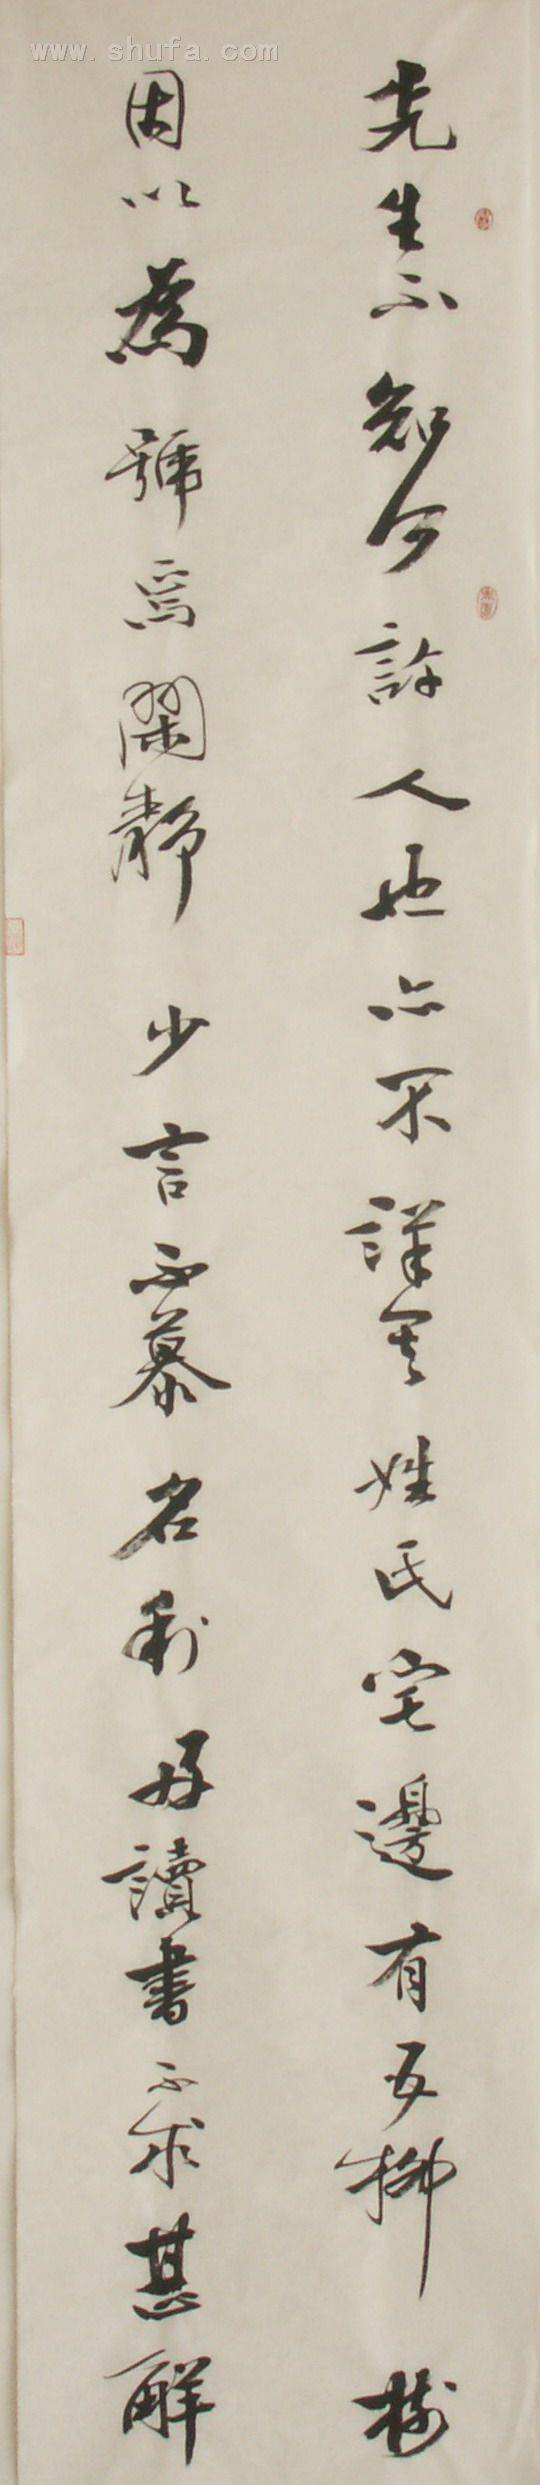 www.shufa.com
先生不知何許人也亦不詳其姓氏宅邊有五柳樹
因以為號焉閑静少言不慕名利好讀書不求甚解